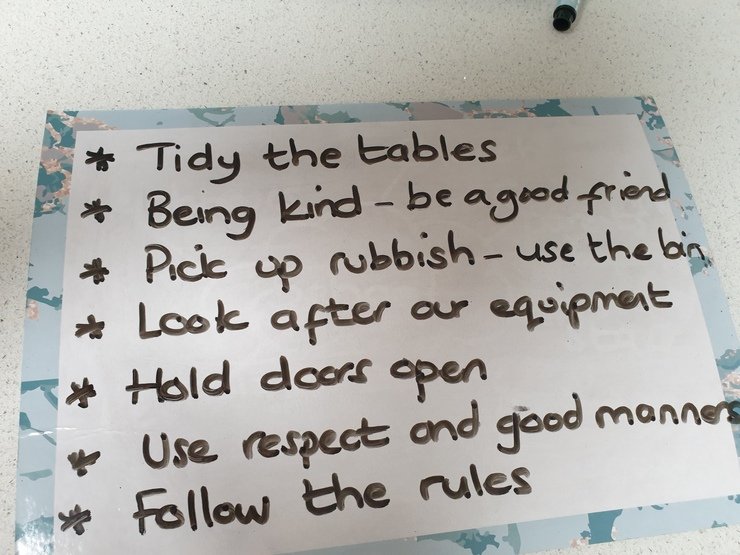 * Tidy the tables
* Being kind - be a good friend
* Pick up rubbish - use the bin
* Look after our equipment
* Hold doors open
* Use respect and good manners
* Follow the rules